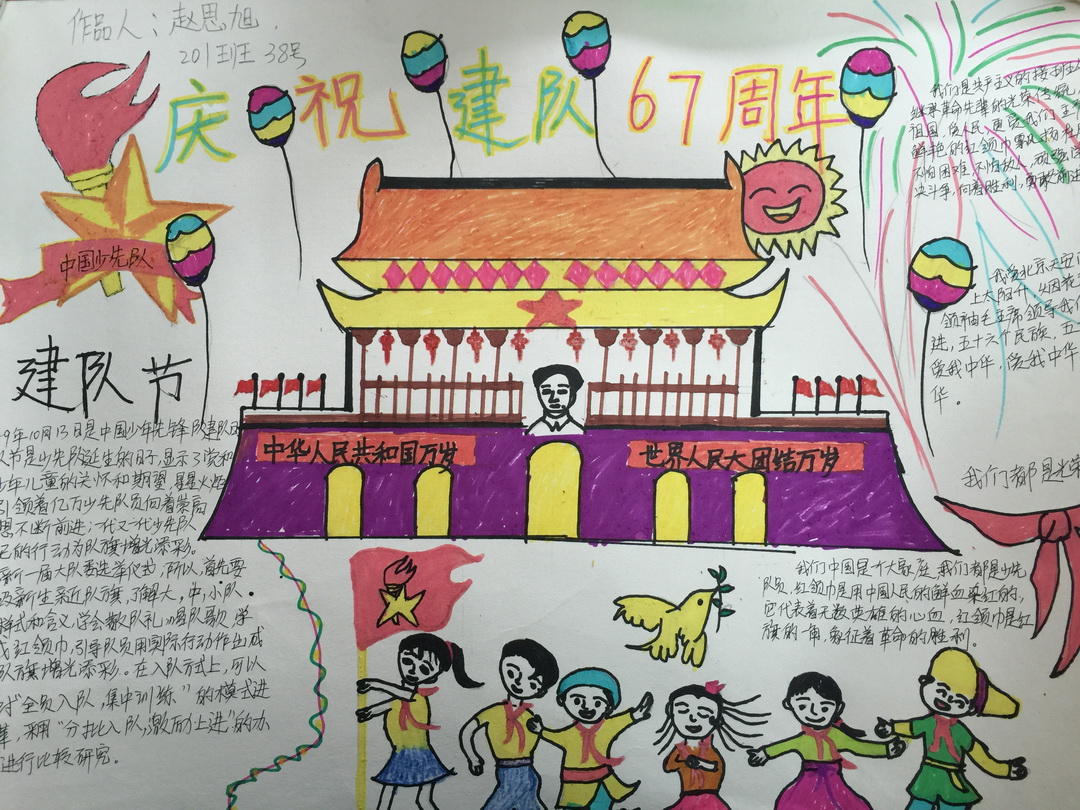 作品人：赵思旭.
201班 38号
庆祝建队67周年
我们是共产主义的接班人
继承革命先辈的光荣传统,
祖国,爱人民,
鲜艳的红领巾飘扬在
不怕困难 不怕敌人,顽强学
决斗争,向着胜利,勇敢前进
中国少先队
我爱北京天安门
上太阳升
领袖毛主席领导我们
进,五十六个民族,五
爱我中华,爱我中华
华。
建队节
9年10月13日是中国少年先锋队建队日
队节是少先队诞生的日子,显示了党和
少年儿童的关怀和期望 星星火炬
引领着亿万少先队员向着崇高
想不断前进;一代又一代少先队
己的行动为队旗增光添彩。
新一届大队委选举仪式,所以,首先要
级新生亲近队旗,了解大,中,小队
样式和含义,学会敬队礼,唱队歌,学
戴红领巾,引导队员用实际行动作出成
队旗增光添彩。在入队方式上,可以
对"全员入队,集中训练"的模式进
革,采用"分批入队,激励上进"的办
进行比较研究。
中华人民共和国万岁
世界人民大团结万岁
我们都是光荣
我们中国是个大家庭,我们都是少先
队员,红领巾是用中国人民的鲜血染红的,
它代表着无数英雄的心血,红领巾是红
旗的一角,象征着革命的胜利。